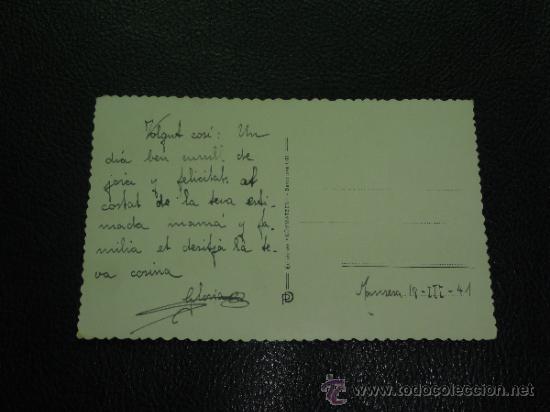 Volgut cosí: Un
dia ben umil. de
joia y felicitat, al
costat de la teva esti-
mada mamá y fa-
milia et desitja la te-
va cosina
Gloria
Manresa 18-III-41
todocoleccion
www.todocoleccion.net